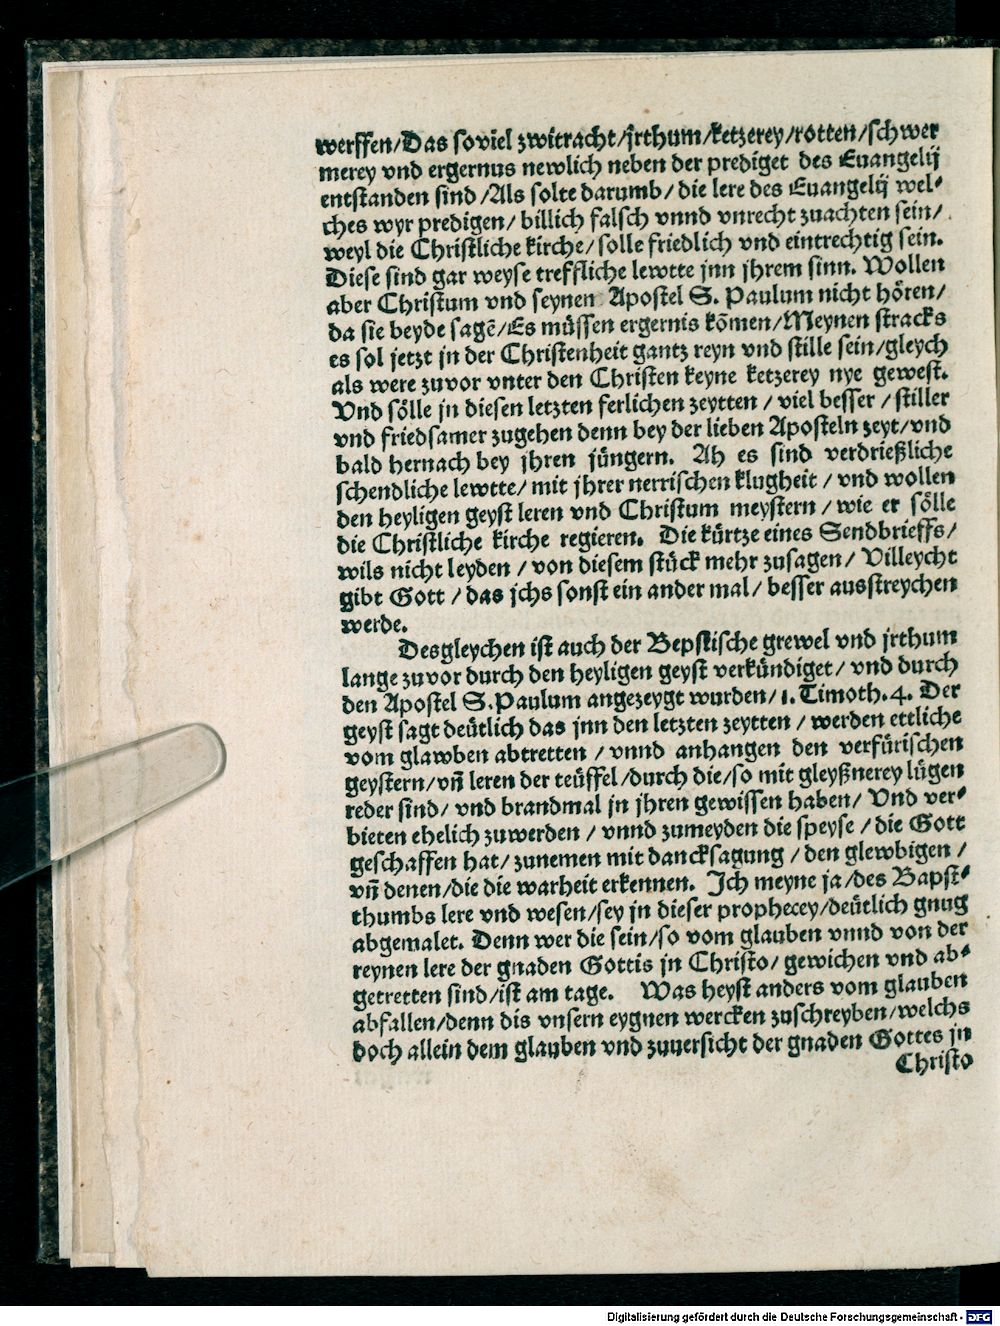 werffen/Das soviel zwitracht/jrthum/ketzerey/rotten/schwer
merey vnd ergernus newlich neben der prediget des Euangelij
entstanden sind/Als solte darumb/die lere des Euangelij wel⸗
ches wyr predigen/billich falsch vnnd vnrecht zuachten sein/
weyl die Christliche kirche/solle friedlich vnd eintrechtig sein.
Diese sind gar weyse treffliche lewtte jnn jhrem sinn. Wollen
aber Christum vnd seynen Apostel S. Paulum nicht hören/
da sie beyde sagē/Es müssen ergernis kōmen/Meynen stracks
es sol jetzt jn der Christenheit gantz reyn vnd stille sein/gleych
als were zuvor vnter den Christen keyne ketzerey nye gewest.
Vnd sölle jn diesen letzten ferlichen zeytten/viel besser/stiller
vnd friedsamer zugehen denn bey der lieben Aposteln zeyt/vnd
bald hernach bey jhren jüngern. Ah es sind verdrießliche
schendliche lewtte/mit jhrer nerrischen klugheit/vnd wollen
den heyligen geyst leren vnd Christum meystern/wie er sölle
die Christliche kirche regieren. Die kürtze eines Sendbrieffs/
wils nicht leyden/von diesem stück mehr zusagen/Villeycht
gibt Gott/das jchs sonst ein ander mal/besser ausstreychen
werde.
Desgleychen ist auch der Bepstische grewel vnd jrthum
lange zuvor durch den heyligen geyst verkündiget/vnd durch
den Apostel S.Paulum angezeygt wurden/1.Timoth.4. Der
geyst sagt deütlich das jnn den letzten zeytten/werden ettliche
vom glawben abtretten/vnnd anhangen den verfürischen
geystern/vn̄ leren der teüffel/durch die/so mit gleyßnerey lügen
reder sind/vnd brandmal jn jhren gewissen haben/Vnd ver⸗
bieten ehelich zuwerden/vnnd zumeyden die speyse/die Gott
geschaffen hat/zunemen mit dancksagung/den glewbigen/
vn̄ denen/die die warheit erkennen. Ich meyne ja/des Bapst⸗
thumbs lere vnd wesen/sey jn dieser prophecey/deütlich gnug
abgemalet. Denn wer die sein/so vom glauben vnnd von der
reynen lere der gnaden Gottis jn Christo/gewichen vnd ab⸗
getretten sind/ist am tage. Was heyst anders vom glauben
abfallen/denn dis vnsern eygnen wercken zuschreyben/welchs
doch allein dem glauben vnd zuuersicht der gnaden Gottes jn
Christo
Digitalisierung gefördert durch die Deutsche Forschungsgemeinschaft - DFG